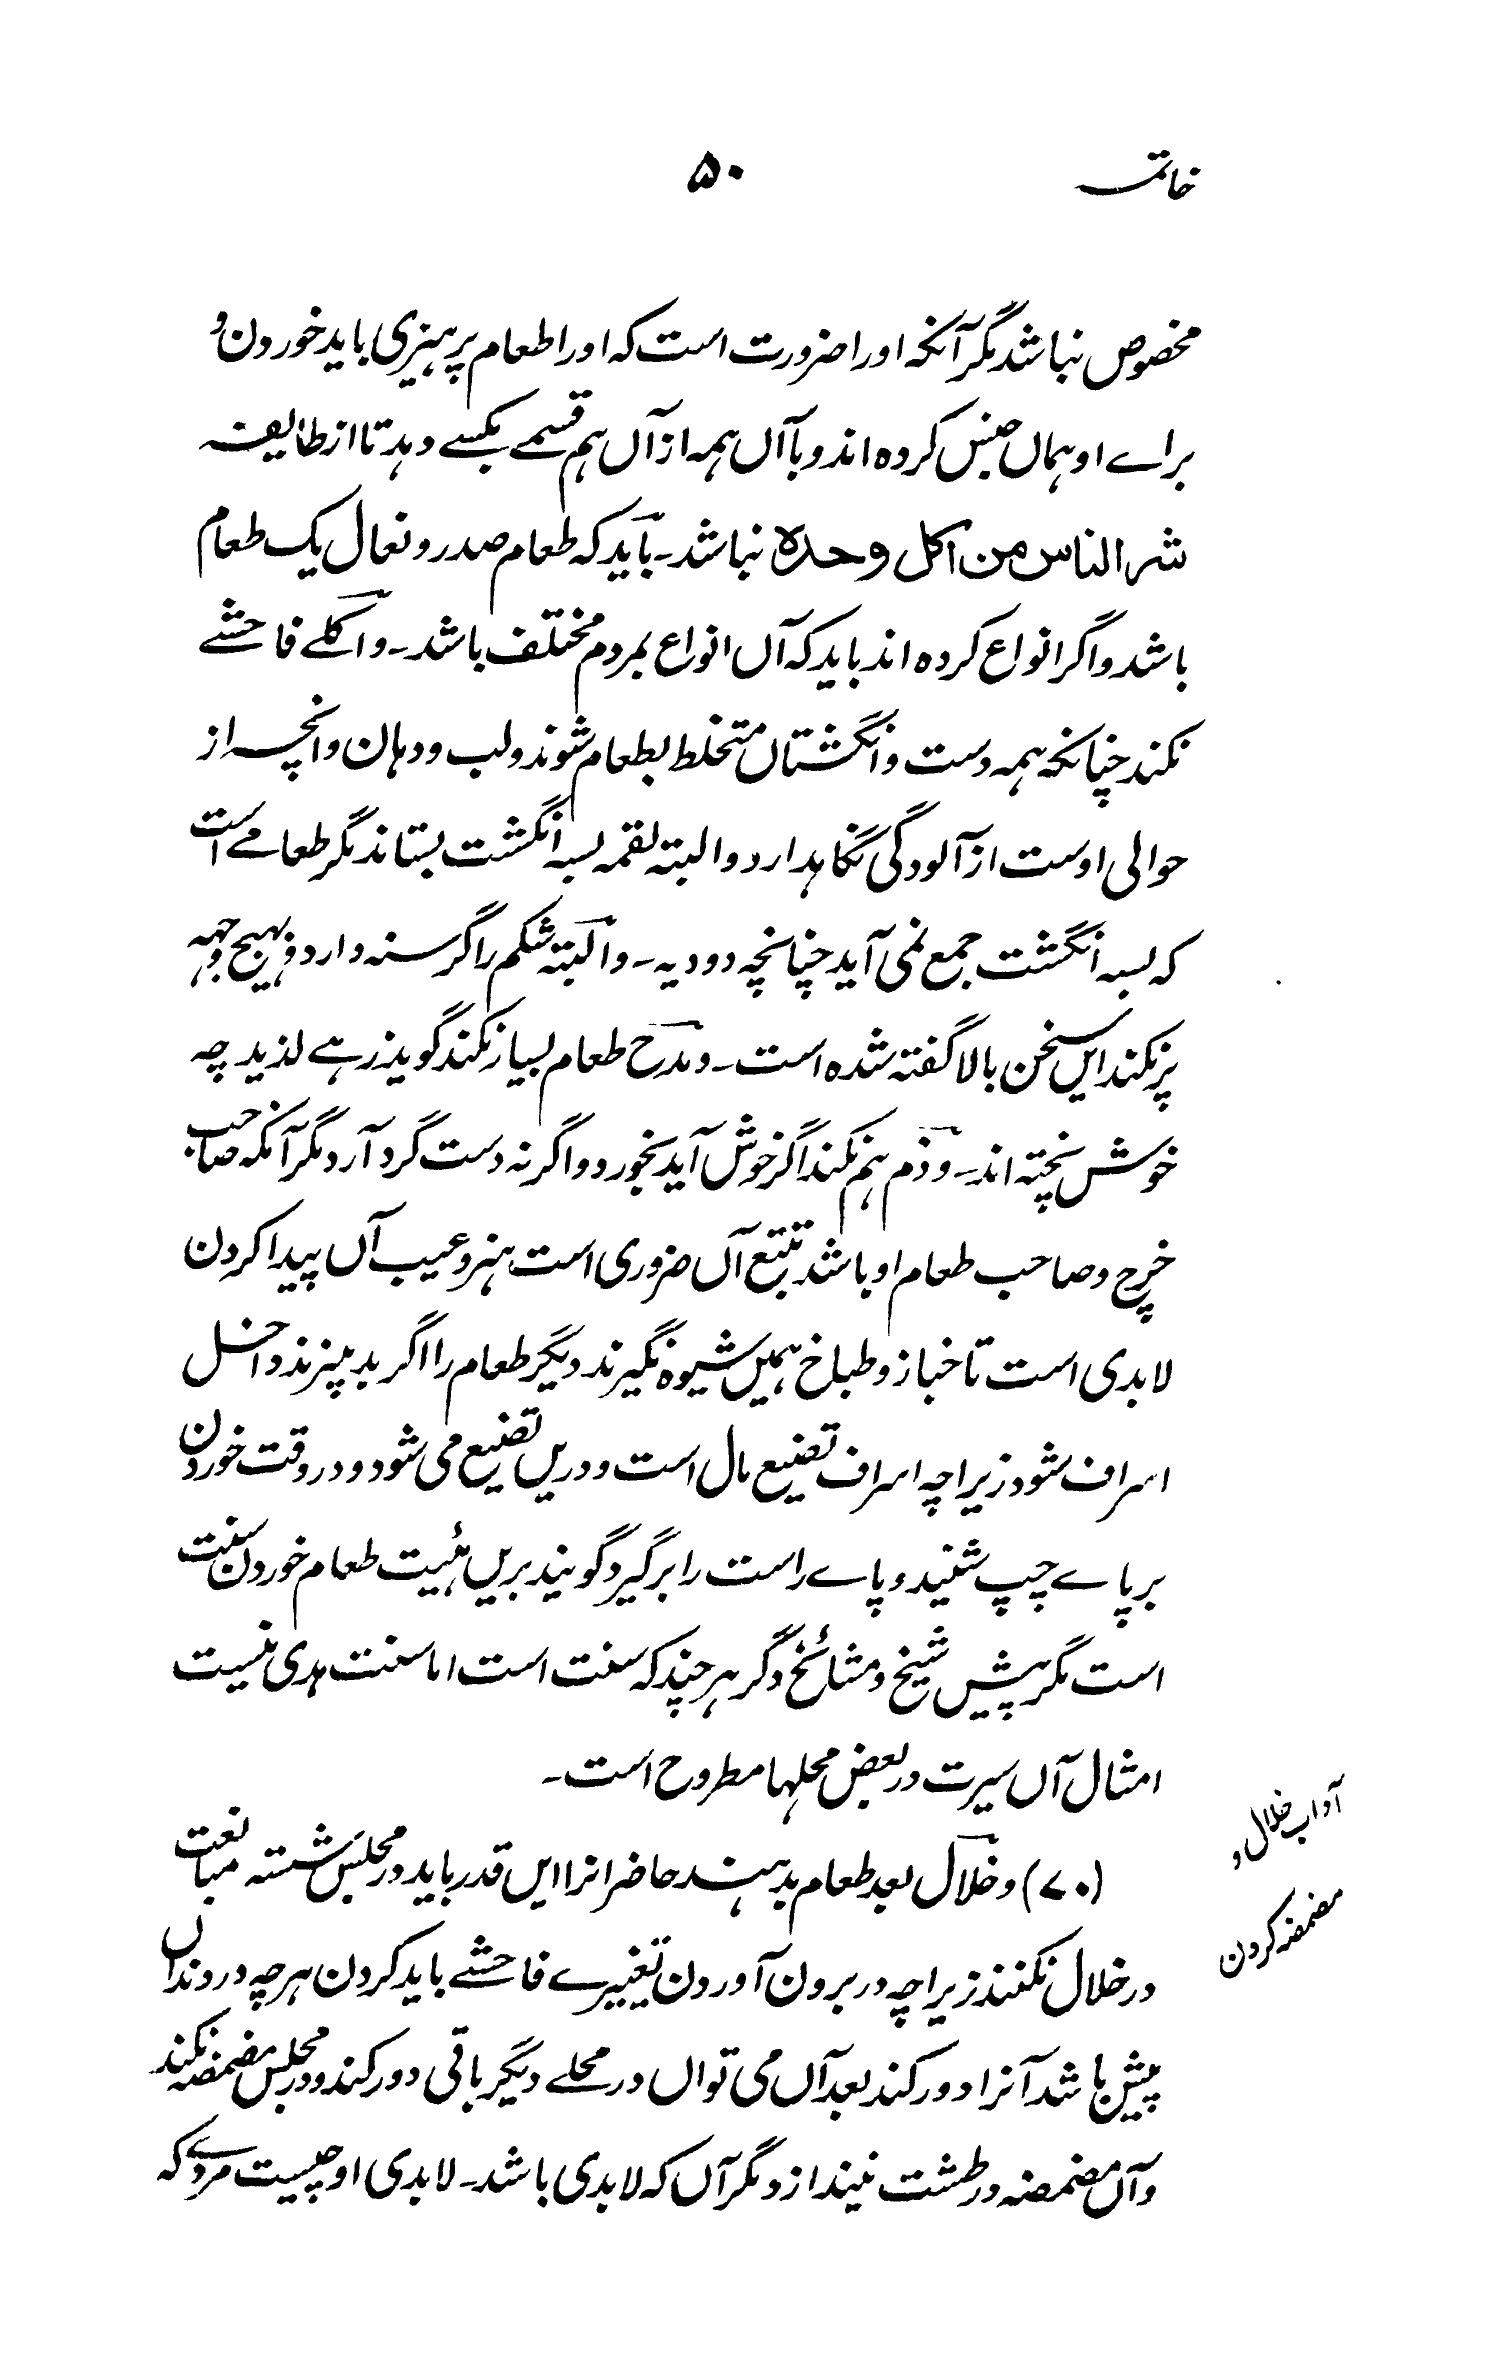 خاتمہ
۵۰
مخصوص نباشد مگر آنکہ او را ضرورت است کہ او را طعام پرہیزی باید خوردن و
براے او ہماں جنس کردہ اند و باآں ہمہ از آں ہم قسمے بکسے دہد تا از طایفہ
شر الناس من اکل وحدہ نباشد۔ باید کہ طعام صدر و نعال یک طعام
باشد و اگر انواع کردہ اند باید کہ آں انواع بمردم مختلف باشد۔ و اکلے فاحشے
نکند چنانکہ ہمہ دست و انگشتاں متخلط بطعام شوند و لب و دہان و انچہ از
حوالی اوست از آلودگی نگاہدارد و البتہ لقمہ بسہ انگشت بستاند مگر طعامے است
کہ بسہ انگشت جمع نمی آید چنانچہ دودیہ۔ و البتہ شکم را گرسنہ دارد و بہیچ وجہہ
پر نکند ایں سخن بالا گفتہ شدہ است۔ و مدح طعام بسیار نکند گویند زہے لذیذ چہ
خوش پختہ اند۔ و ذم ہم نکند اگر خوش آید بخورد و اگر نہ دست گرد آرد مگر آنکہ صاحب
خرچ و صاحب طعام او باشد تتبع آں ضروری است ہنر و عیب آں پیدا کردن
لابدی است تا خباز و طباخ ہمیں شیوہ نگیرند دیگر طعام را اگر بد بپزند داخل
اسراف شود زیراچہ اسراف تضییع مال است و دریں تضییع می شود و در وقت خوردن
بر پاے چپ شنید و پاے راست را برگیرد گویند بریں ہئیت طعام خوردن سنت
است مگر پیش شیخ و مشائخ دگر ہر چند کہ سنت است اما سنت ہدی نیست
امثال آں سیرت در بعض محلہا مطروح است۔
آداب خلال و
مضمضہ کردن
(۷۰) و خلال بعد طعام بدہند حاضرانرا ایں قدر باید در مجلس شستہ مبالغت
در خلال نکنند زیراچہ در برون آوردن تغییرے فاحشے باید کردن ہرچہ در دنداں
پیش باشد آنرا دور کند بعد آں می تواں در محلے دیگر باقی دور کند و در مجلس مضمضہ نکند
و آں مضمضہ در طشت نیندازد مگر آں کہ لابدی باشد۔ لابدی او چیست مردے کہ